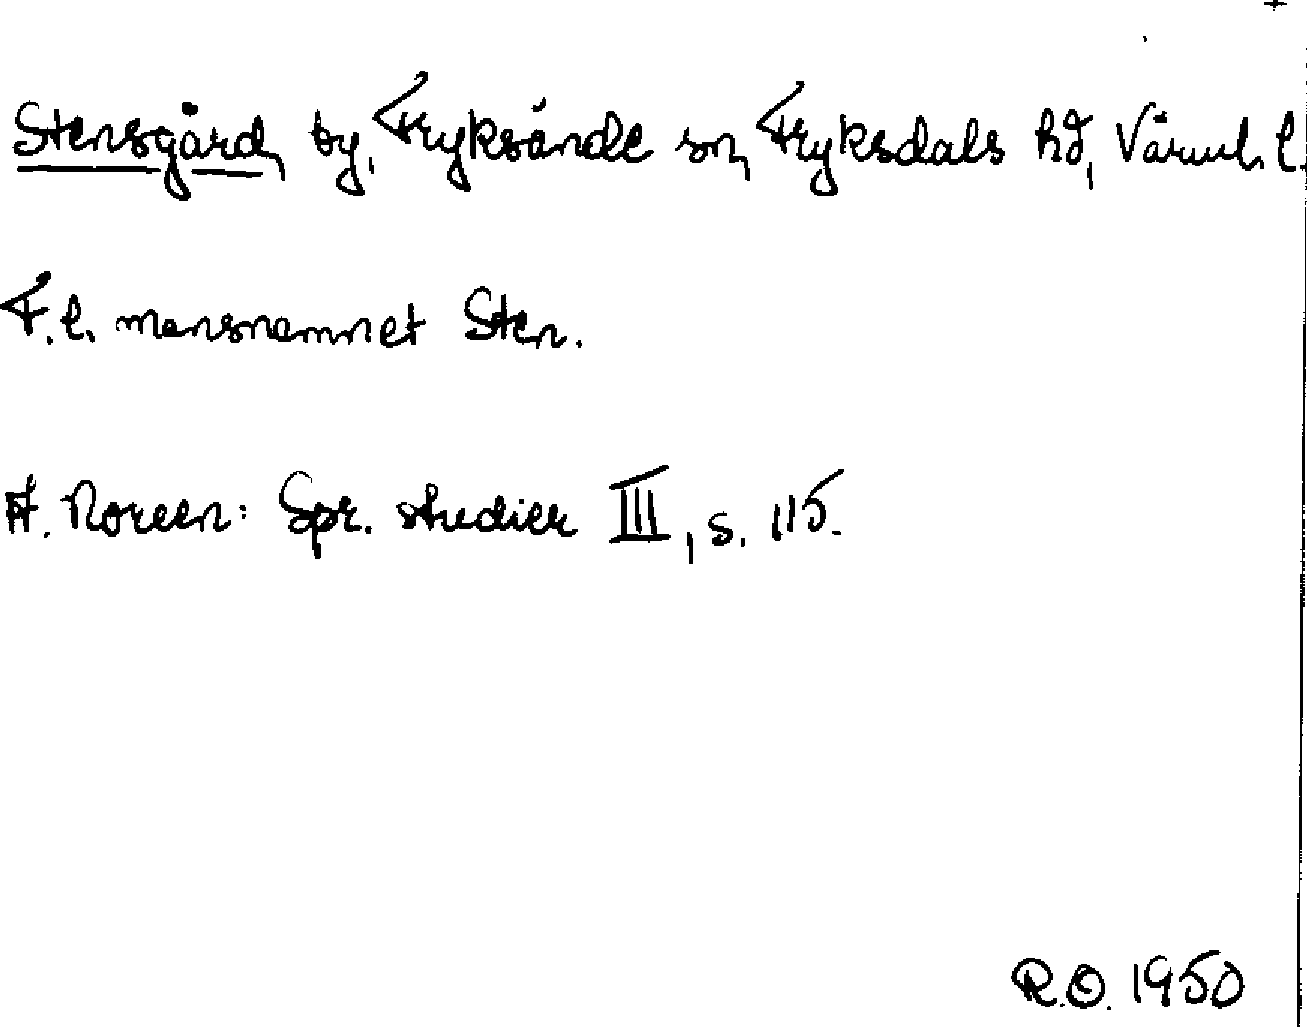 Stensgård, by, Fryksände sn, Fryksdals hd, Värml. l.
F.l. mansnamnet Sten.
A. Noreen: Spr. studier III, s. 115.
R.O. 1950